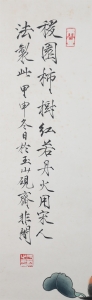 校園柿樹紅若丹火用宋人
法製此甲申冬日於玉山硯齋非闇